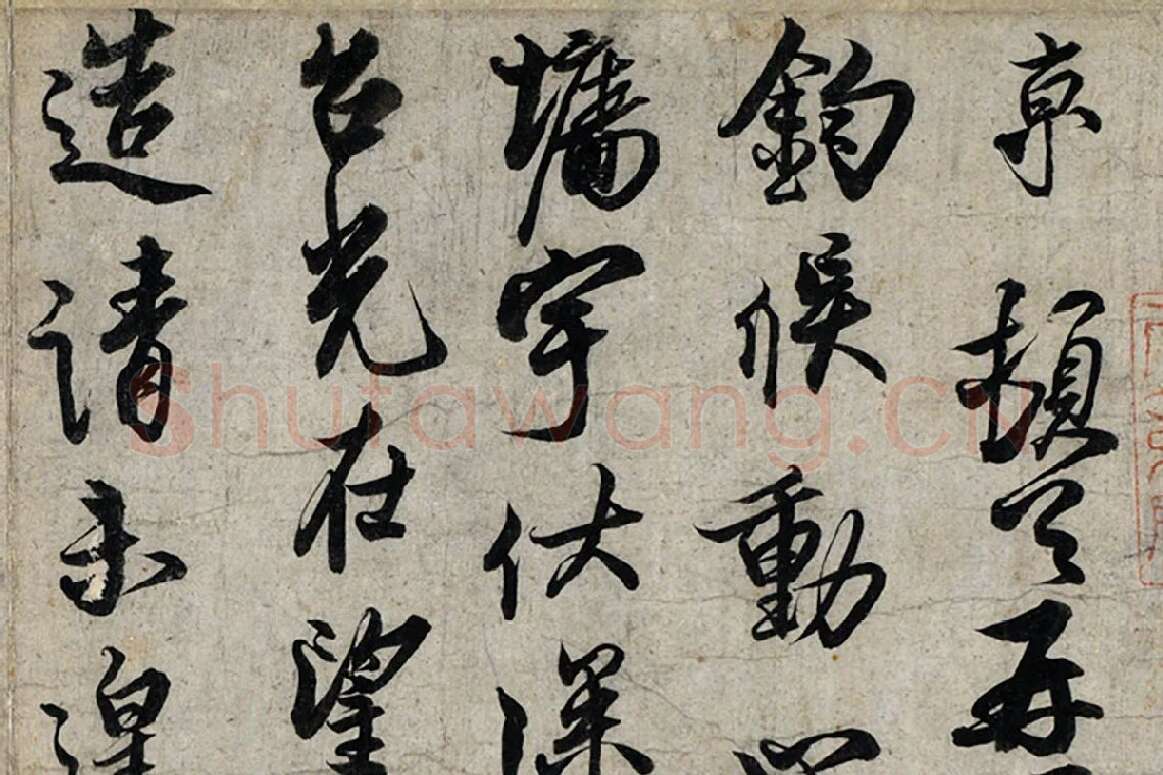 京頓首再
鈞候動
墉宇伏深
台光在望
造請未遑
Shufawang.cn